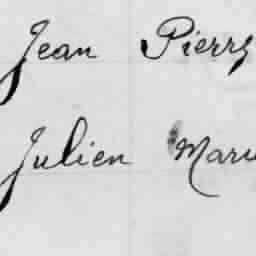 Jean Pierre
Julien Marie